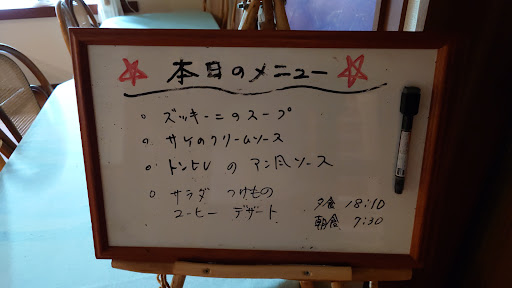 本日のメニュー
○ ズッキーニのスープ
○ サケのクリームソース
○ トンヒレのマン風ソース
○ サラダ つけもの
コーヒー デザート
夕食 18:10
朝食 7:30